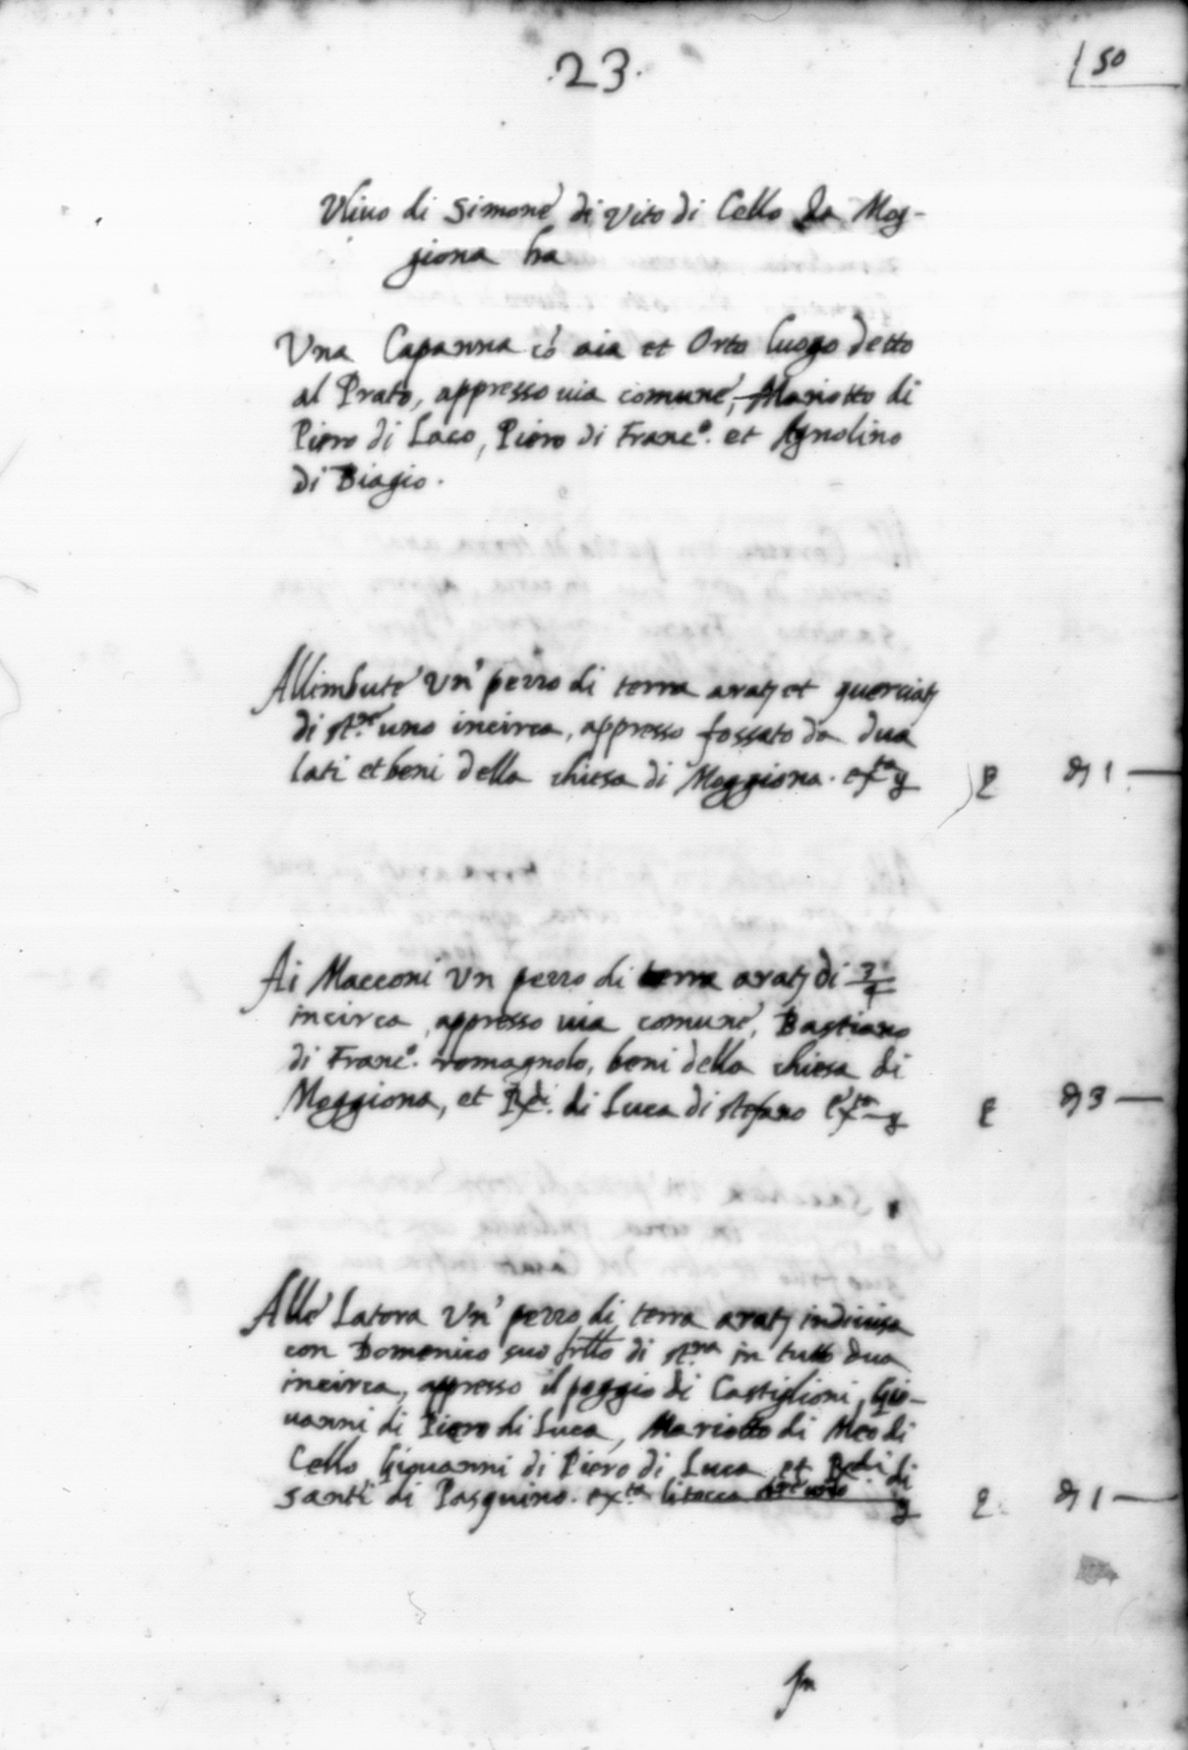 .23.
50
Vliuo di Simone di Vito di Cello da Mog-
giona ha
Vna Capanna có aia et Orto luogo detto
al Prato, appresso uia comune, Mariotto di
Piero di Laco, Piero di Franc.º et Agnolino
di Biagio.
Allimbute Vn' pezzo di terra arat et querciat
di st.re uno incirca, appresso fossato da dua
lati et beni della chiesa di Moggiona. exta 1
Ai Macconi Vn pezzo di terra arat di 3/4
incirca appresso uia comune, Bastiano
di Franc.º romagnolo, beni della chiesa di
Moggiona, et Redi. di Luca di stefano exta 3
Alle Latora Vn' pezzo di terra arat indiuisa
con Domenico suo frllo di st.ra in tutto dua
incirca, appresso il poggio di Castiglioni, Gio-
uanni di Piero di Luca, Mariotto di Meo di
Cello, Giouanni di Piero di Luca et Redi di
Santi di Pasquino. exta li tocca st.re uno 1
In